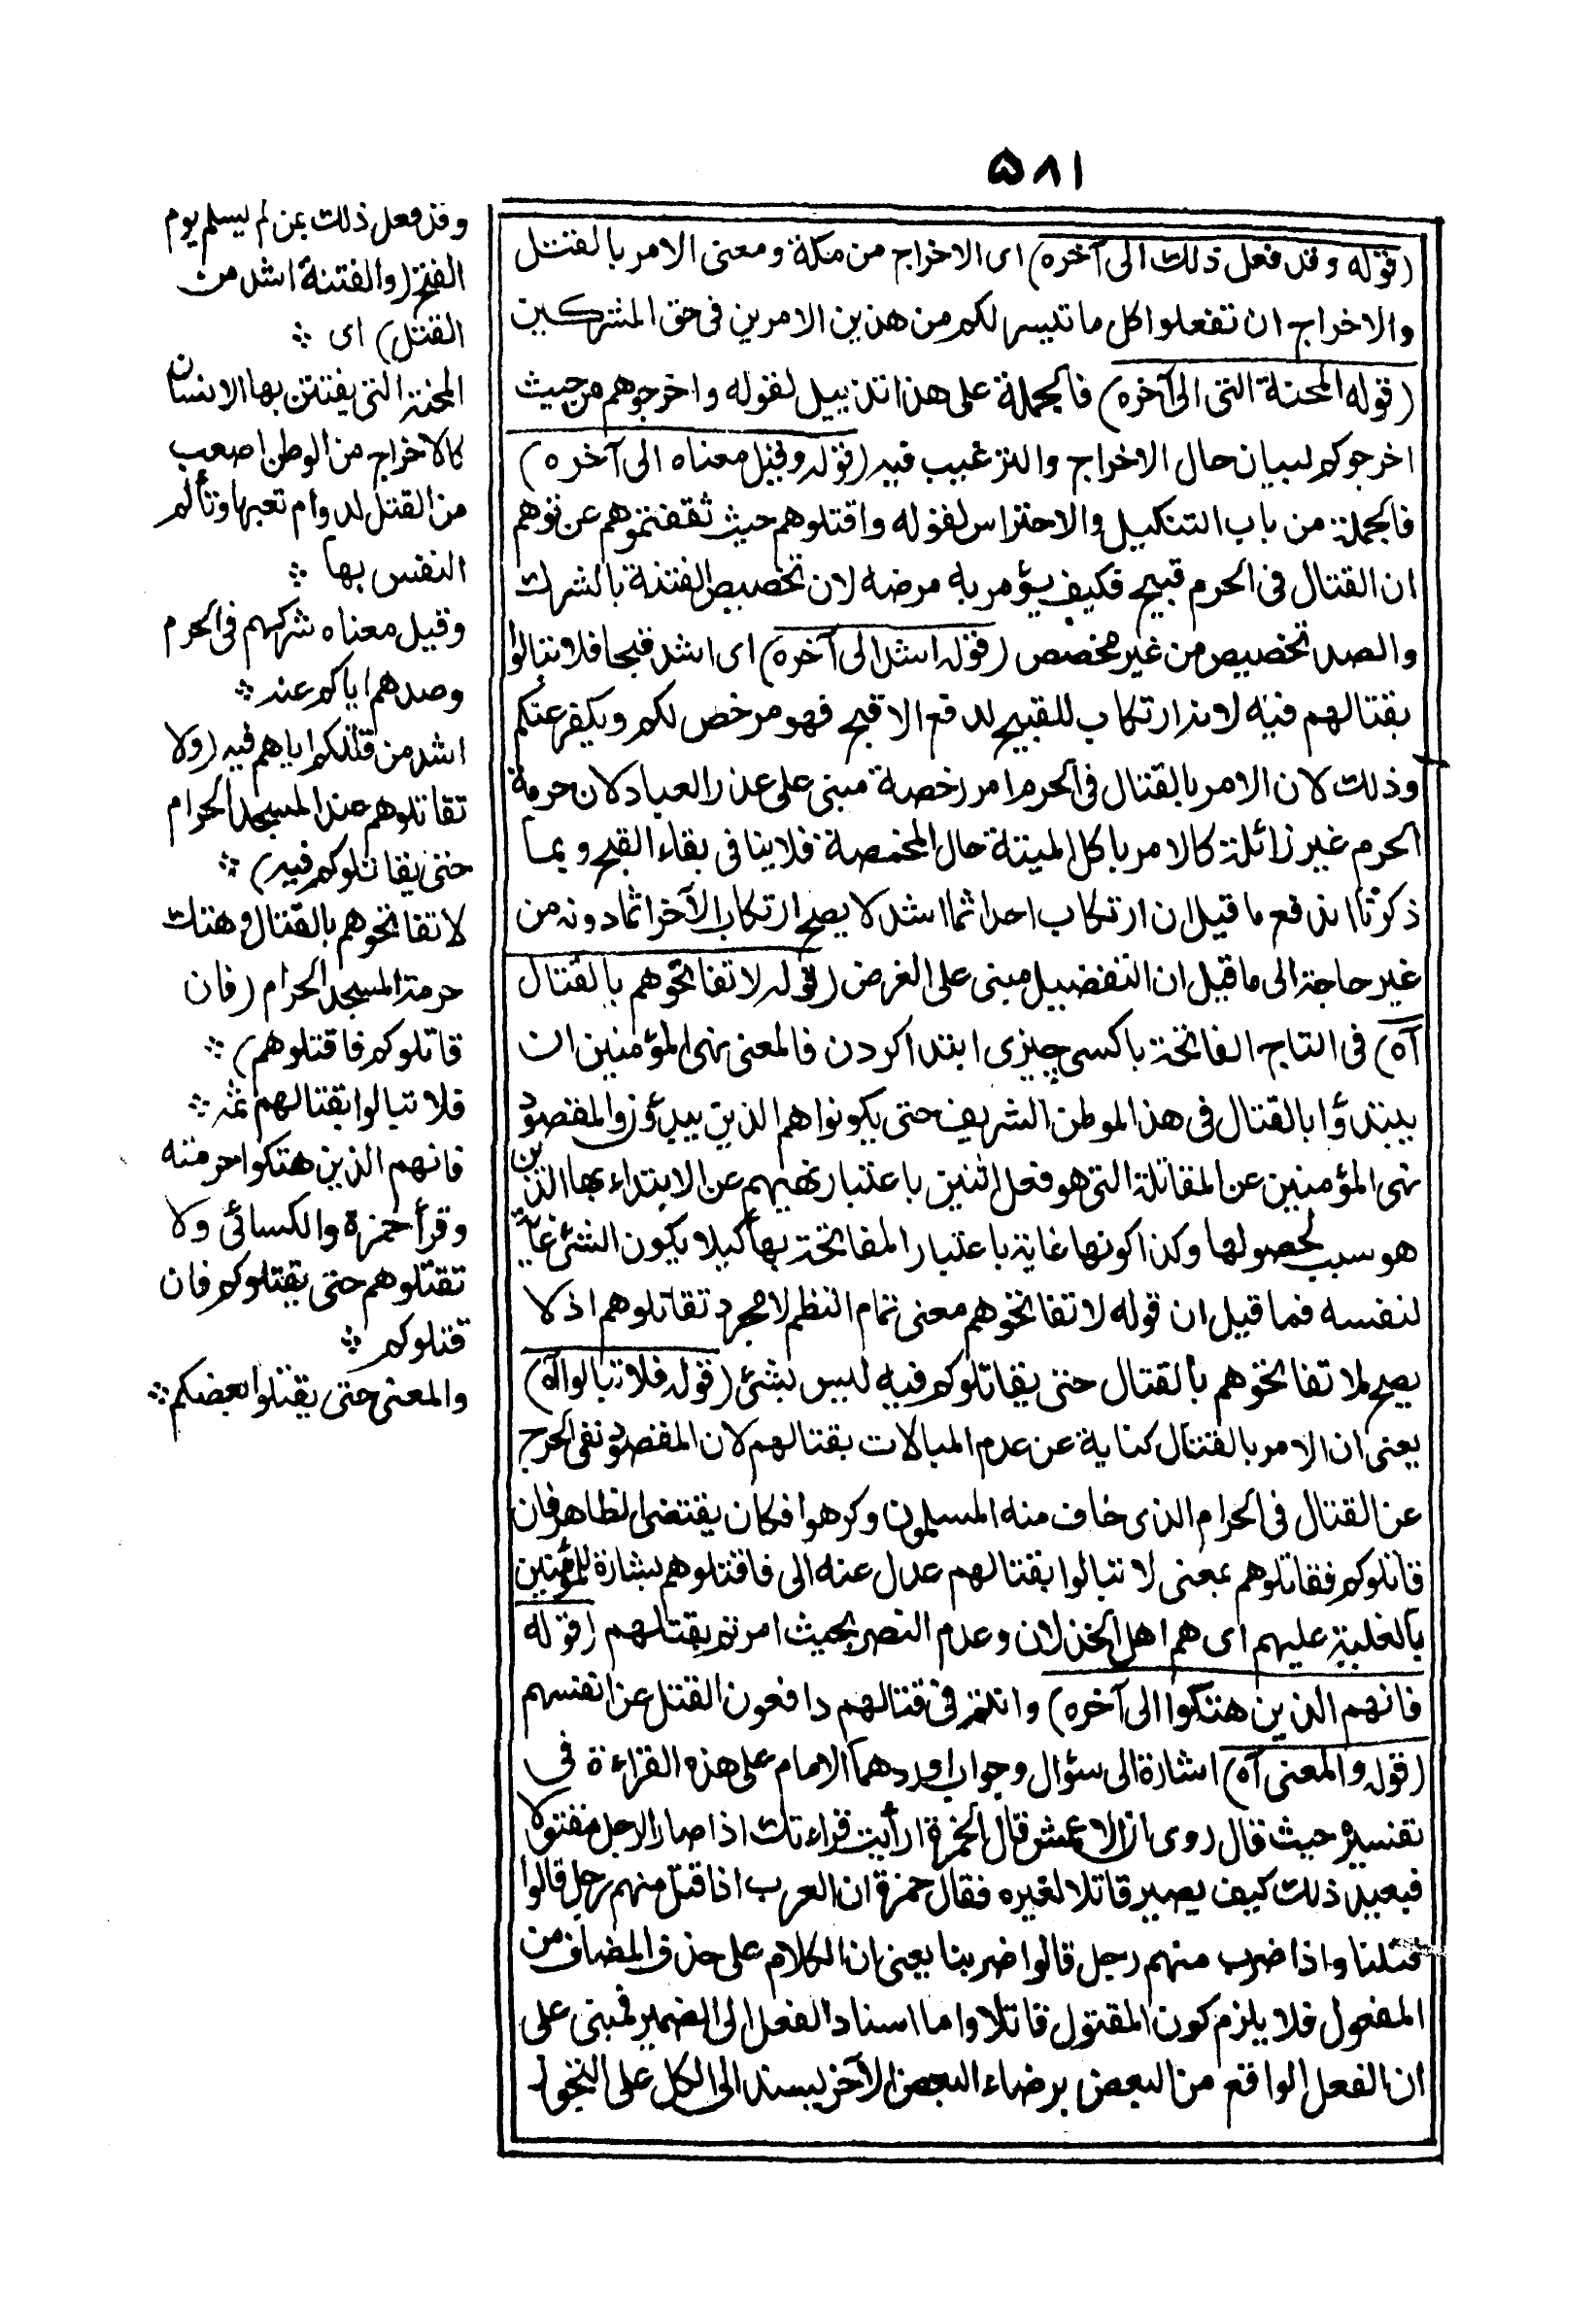 ۵۸۱
(قوله وقد فعل ذلك الى آخره) اى الاخراج من مكة ومعنى الامر بالقتل
والاخراج ان تفعلوا كل ما تيسر لكم من هذين الامرين فى حق المشركين
(قوله المحنة التى الى آخره) فالجملة على هذا تذييل لقوله واخرجوهم من حيث
اخرجوكم لبيان حال الاخراج والترغيب فيه (قوله وقيل معناه الى آخره)
فالجملة من باب التكميل والاحتراس لقوله واقتلوهم حيث ثقفتموهم عن توهم
ان القتال فى الحرم قبيح فكيف يؤمر به مرضه لان تخصيص الفتنة بالشرك
والصد تخصيص من غير مخصص (قوله اشد الى آخره) اى اشد قبحا فلا تبالوا
بقتالهم فيه لانه ارتكاب للقبيح لدفع الاقبح فهو مرخص لكم ويكفر عنكم
وذلك لان الامر بالقتال فى الحرم امر رخصة مبنى على عذر العباد لان حرمة
الحرم غير زائلة كالامر باكل الميتة حال المخمصة فلا ينافى بقاء القبح وبما
ذكرنا اندفع ما قيل ان ارتكاب احد اثما اشد لا يصح ارتكاب الآخر اثما دونه من
غير حاجة الى ما قيل ان التفضيل مبنى على الفرض (قوله لا تفاتحوهم بالقتال
آه) فى التاج الفاتحة باكسى چيزى ابتدا كردن فالمعنى نهى المؤمنين ان
يبتدؤا بالقتال فى هذا الموطن الشريف حتى يكونوا هم الذين يبدؤن والمقصود
نهى المؤمنين عن المقاتلة التى هو فعل اثنين باعتبار نهيهم عن الابتداء بها الذين
هو سبب لحصولها وكذا كونها غاية باعتبار المفاتحة بها كيلا يكون الشئ غاية
لنفسه فما قيل ان قوله لا تفاتحوهم معنى تمام النظم لا مجرد تقاتلوهم اذ لا
يصح لا تفاتحوهم بالقتال حتى يقاتلوكم فيه ليس بشئ (قوله فلا تبالوا آه)
يعنى ان الامر بالقتال كناية عن عدم المبالات بقتالهم لان المقصود نفى الحرج
عن القتال فى الحرام الذى خاف منه المسلمون وكرهوا فكان يقتضى الظاهر فان
قاتلوكم فقاتلوهم بمعنى لا تبالوا بقتالهم عدل عنه الى فاقتلوهم بشارة للمؤمنين
بالغلبة عليهم اى هم اهل الخذلان وعدم النصر بحيث امرتم بقتلهم (قوله
فانهم الذين هتكوا الى آخره) وانتم فى قتالهم دافعون القتل عن انفسهم
(قوله والمعنى آه) اشارة الى سؤال وجواب اوردهما الامام على هذه القراءة فى
تفسيره حيث قال روى ان الاعمش قال لحمزة ارأيت قراءتك اذا صار الرجل مقتولا
فبعيد ذلك كيف يصير قاتلا لغيره فقال حمزة ان العرب اذا قتل منهم رجل قالوا
قتلنا واذا ضرب منهم رجل قالوا ضربنا يعنى ان الكلام على حذف المضاف من
المفعول فلا يلزم كون المقتول قاتلا واما اسناد الفعل الى الضمير فمبنى على
ان الفعل الواقع من البعض برضاء البعض الآخر يسند الى الكل على التجوز
وقد فعل ذلك بمن لم يسلم يوم
الفتح (والفتنة اشد من
القتل) اى
المحنة التى يفتتن بها الانسان
كالاخراج من الوطن اصعب
من القتل لدوام تعبها وتألم
النفس بها
وقيل معناه شركهم فى الحرم
وصدهم اياكم عنه
اشد من قتلكم اياهم فيه (ولا
تقاتلوهم عند المسجد الحرام
حتى يقاتلوكم فيه)
لا تفاتحوهم بالقتال وهتك
حرمة المسجد الحرام (فان
قاتلوكم فاقتلوهم)
فلا تبالوا بقتالهم ثمه
فانهم الذين هتكوا حرمته
وقرأ حمزة والكسائى ولا
تقتلوهم حتى يقتلوكم فان
قتلوكم
والمعنى حتى يقتلوا بعضكم